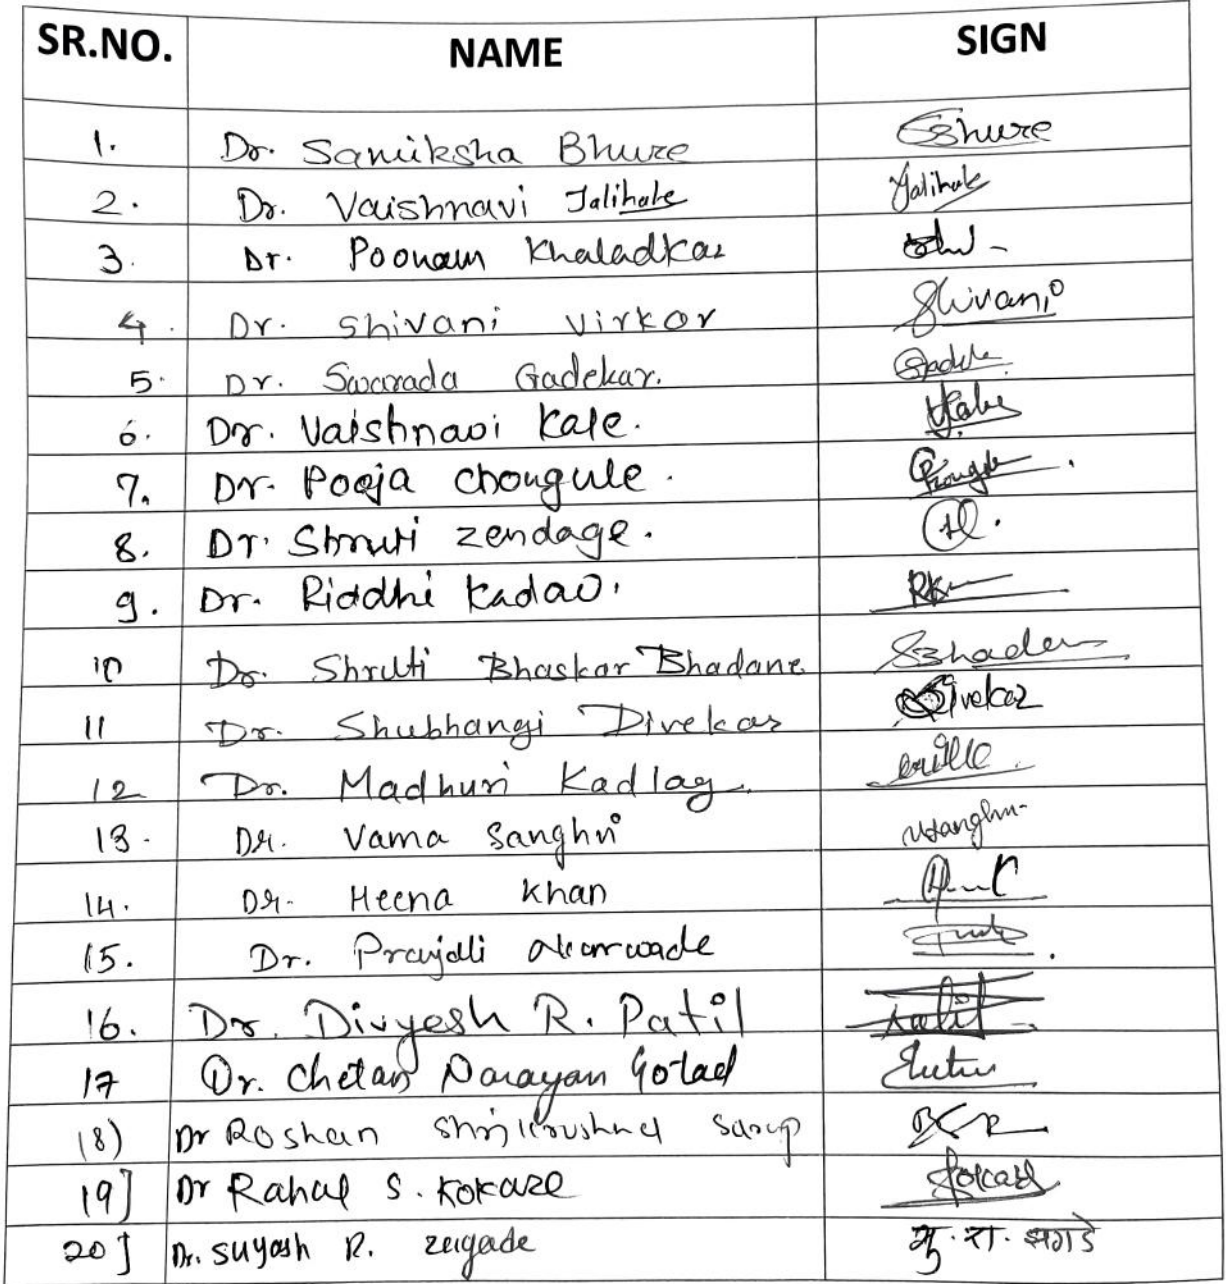 SR.NO. NAME SIGN
1. Dr. Samiksha Bhure Bhure
2. Dr. Vaishnavi Jalihale Jalihale
3. Dr. Poonam Khaladkar
4. Dr. Shivani Virkar Shivani
5. Dr. Swarada Gadekar.
6. Dr. Vaishnavi Kale. Kale
7. Dr. Pooja chougule.
8. Dr. Shruti zendage.
9. Dr. Riddhi Kadav. RK
10 Dr. Shruti Bhaskar Bhadane
11 Dr. Shubhangi Divekar Divekar
12 Dr. Madhuri Kadlag.
13. Dr. Vama Sanghvi vsanghvi
14. Dr. Heena Khan
15. Dr. Prajali
16. Dr. Divyesh R. Patil
17 Dr. Chetan Narayan Gotad
18) Dr Roshan Shrikrushna Sarap
19] Dr Rahul S. Kokare Kokare
20] Dr. Suyash R. zagade सु. रा. झगडे